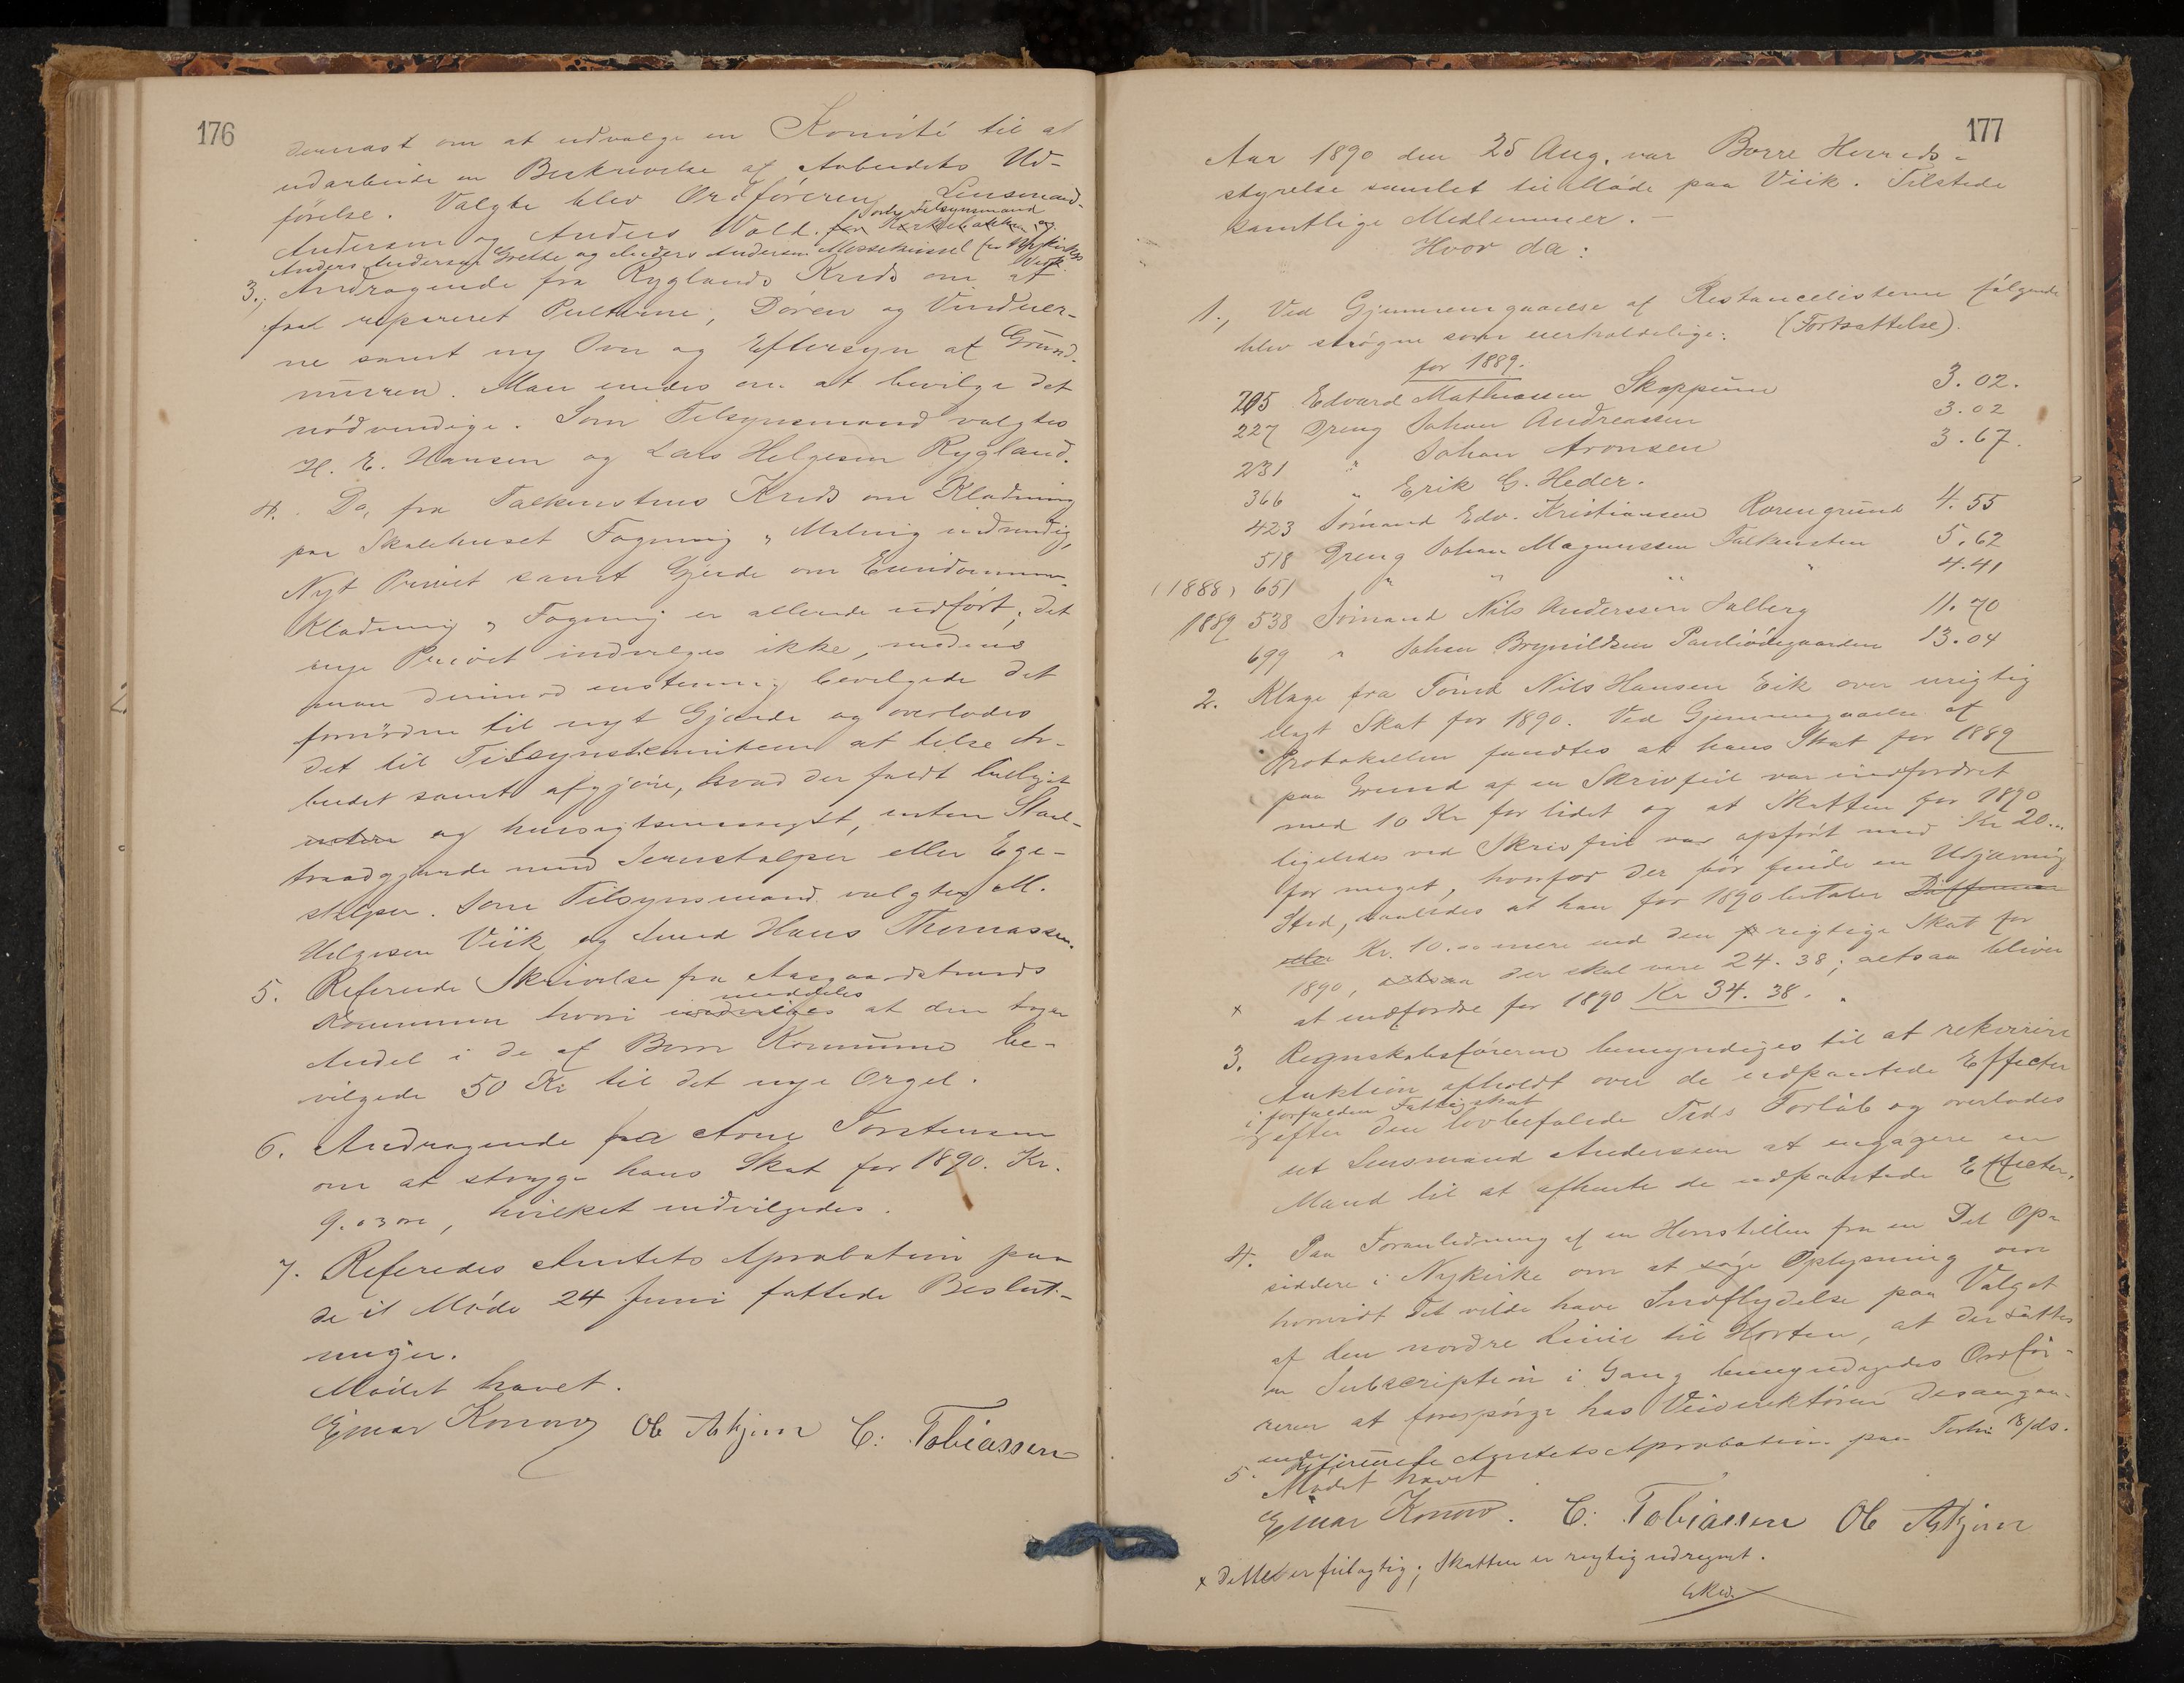 176
dernæst om at udvælge en Komité til at
udarbeide en Beskrivelse af Arbeidets Ud-
førelse. Valgte blev Ordføreren, Lensmand
Anderssen og Anders Wold.
som Tilsynsmænd
Anders Andersen Grette og Anders Andersen
3., Andragende fra Ryglands Kreds om at
faa repareret Pulterne, Døren og Vinduer-
ne samt ny Ovn og Eftersyn af Grund-
muren. Man enedes om at bevilge det
nødvendige. Som Tilsynsmænd valgtes
H. E. Hansen og Lars Helgesen Rygland.
4. Do, fra Falkenstens Kreds om Klædning
paa Skolehuset Fagning & Maling indvendig,
Nyt Privet samt Gjerde om Eiendommen.
Klædning & Fagning er allerede udført; det
nye Privet indvilges ikke, medens
man derimod enstemmig bevilgede det
fornødne til nyt Gjærde og overlodes
det til Tilsynskomiteen at lede Ar-
beidet samt afgjøre, hvad der faldt billigst
og hensigtsmæssigst, enten Staal-
traadgjærde med Jernstolper eller Ege-
stolper. Som Tilsynsmænd valgtes M.
Helgesen Viik og Hans Thomassen.
5. Refererede Skrivelse fra Aasgaardstrands
Kommune hvori indvilges at den tager
meddeles
Andel i de af Borre Kommune be-
vilgede 50 Kr til det nye Orgel.
6. Andragende fra Arne Torstensen
om at stryge hans Skat for 1890. Kr.
9.03 øre, hvilket indvilgedes.
7. Referedes Amtets Aprobation paa
de i Møde 24 Juni fattede Beslut-
ninger.
Mødet hævet.
Einar Konow Ob Asbjørn C: Tobiassen
177
Aar 1890 den 25 Aug. var Borre Herreds-
styrelse samlet til Møde paa Viik. Tilstede
samtlige Medlemmer. —
Hvor da:
1., Ved Gjennemgaaelse af Restancelisterne følgende
blev strøgne som uerholdelige: (Fortsættelse).
for 1889.
205 Edvard Mathiassen Skoppum 3.02.
227 Dreng Johan Andreassen 3.02
231 " Johan Aronsen 3.67.
366 " Erik G. Heder.
423 Sømand Edv. Kristiansen Rorengrund 4.55
518 Dreng Johan Magnussen Falkensten 5.62
(1888) 651 " " " " 4.41
1889 538 Sømand Nils Anderssen Salberg 11.70
699 " Johan Brynildsen 13.04
2. Klage fra Tømd Nils Hansen Eik over urigtig
ilagt Skat for 1890. Ved Gjennemgaaelse af
Protokollen fandtes at hans Skat for 1889
paa Grund af en Skrivfeil var indfordret
med 10 Kr for lidet og at Skatten for 1890
ligeledes ved Skrivfeil var opført med Kr 20...
for meget, hvorfor der bør finde en Udjævning
Sted, saaledes at han for 1890 betaler Differencen
eller Kr. 10.00 mere end den rigtige Skat for
1890, altsaa der skal være 24.38; altsaa bliver
x at indfordre for 1890 Kr 34.38.
3. Regnskabsføreren bemyndiges til at rekvirere
Auktion afholdt over de udpantede Effecter
i forfalden Fattigskat
efter den lovbefalede Tids Forløb og overlodes
det Lensmand Anderssen at engagere en
Mand til at afhente de udpantede Effecter.
4. Paa Foranledning af en Henstillen fra en Del Op-
siddere i Nykirke om at søge Oplysning om
hvorvidt det vilde have Indflydelse paa Valget
af den nordre Linie til Horten, at der sattes
en Subscription i Gang bemyndigedes Ordfø-
reren at forespørge hos Veidirektøren desangaa-
ende
5. Refererede Amtets Aprobation paa
Mødet hævet
Einar Konow. C: Tobiassen Ob Asbjørn
x Dette er feilagtig; Skatten er rigtig udregnet.